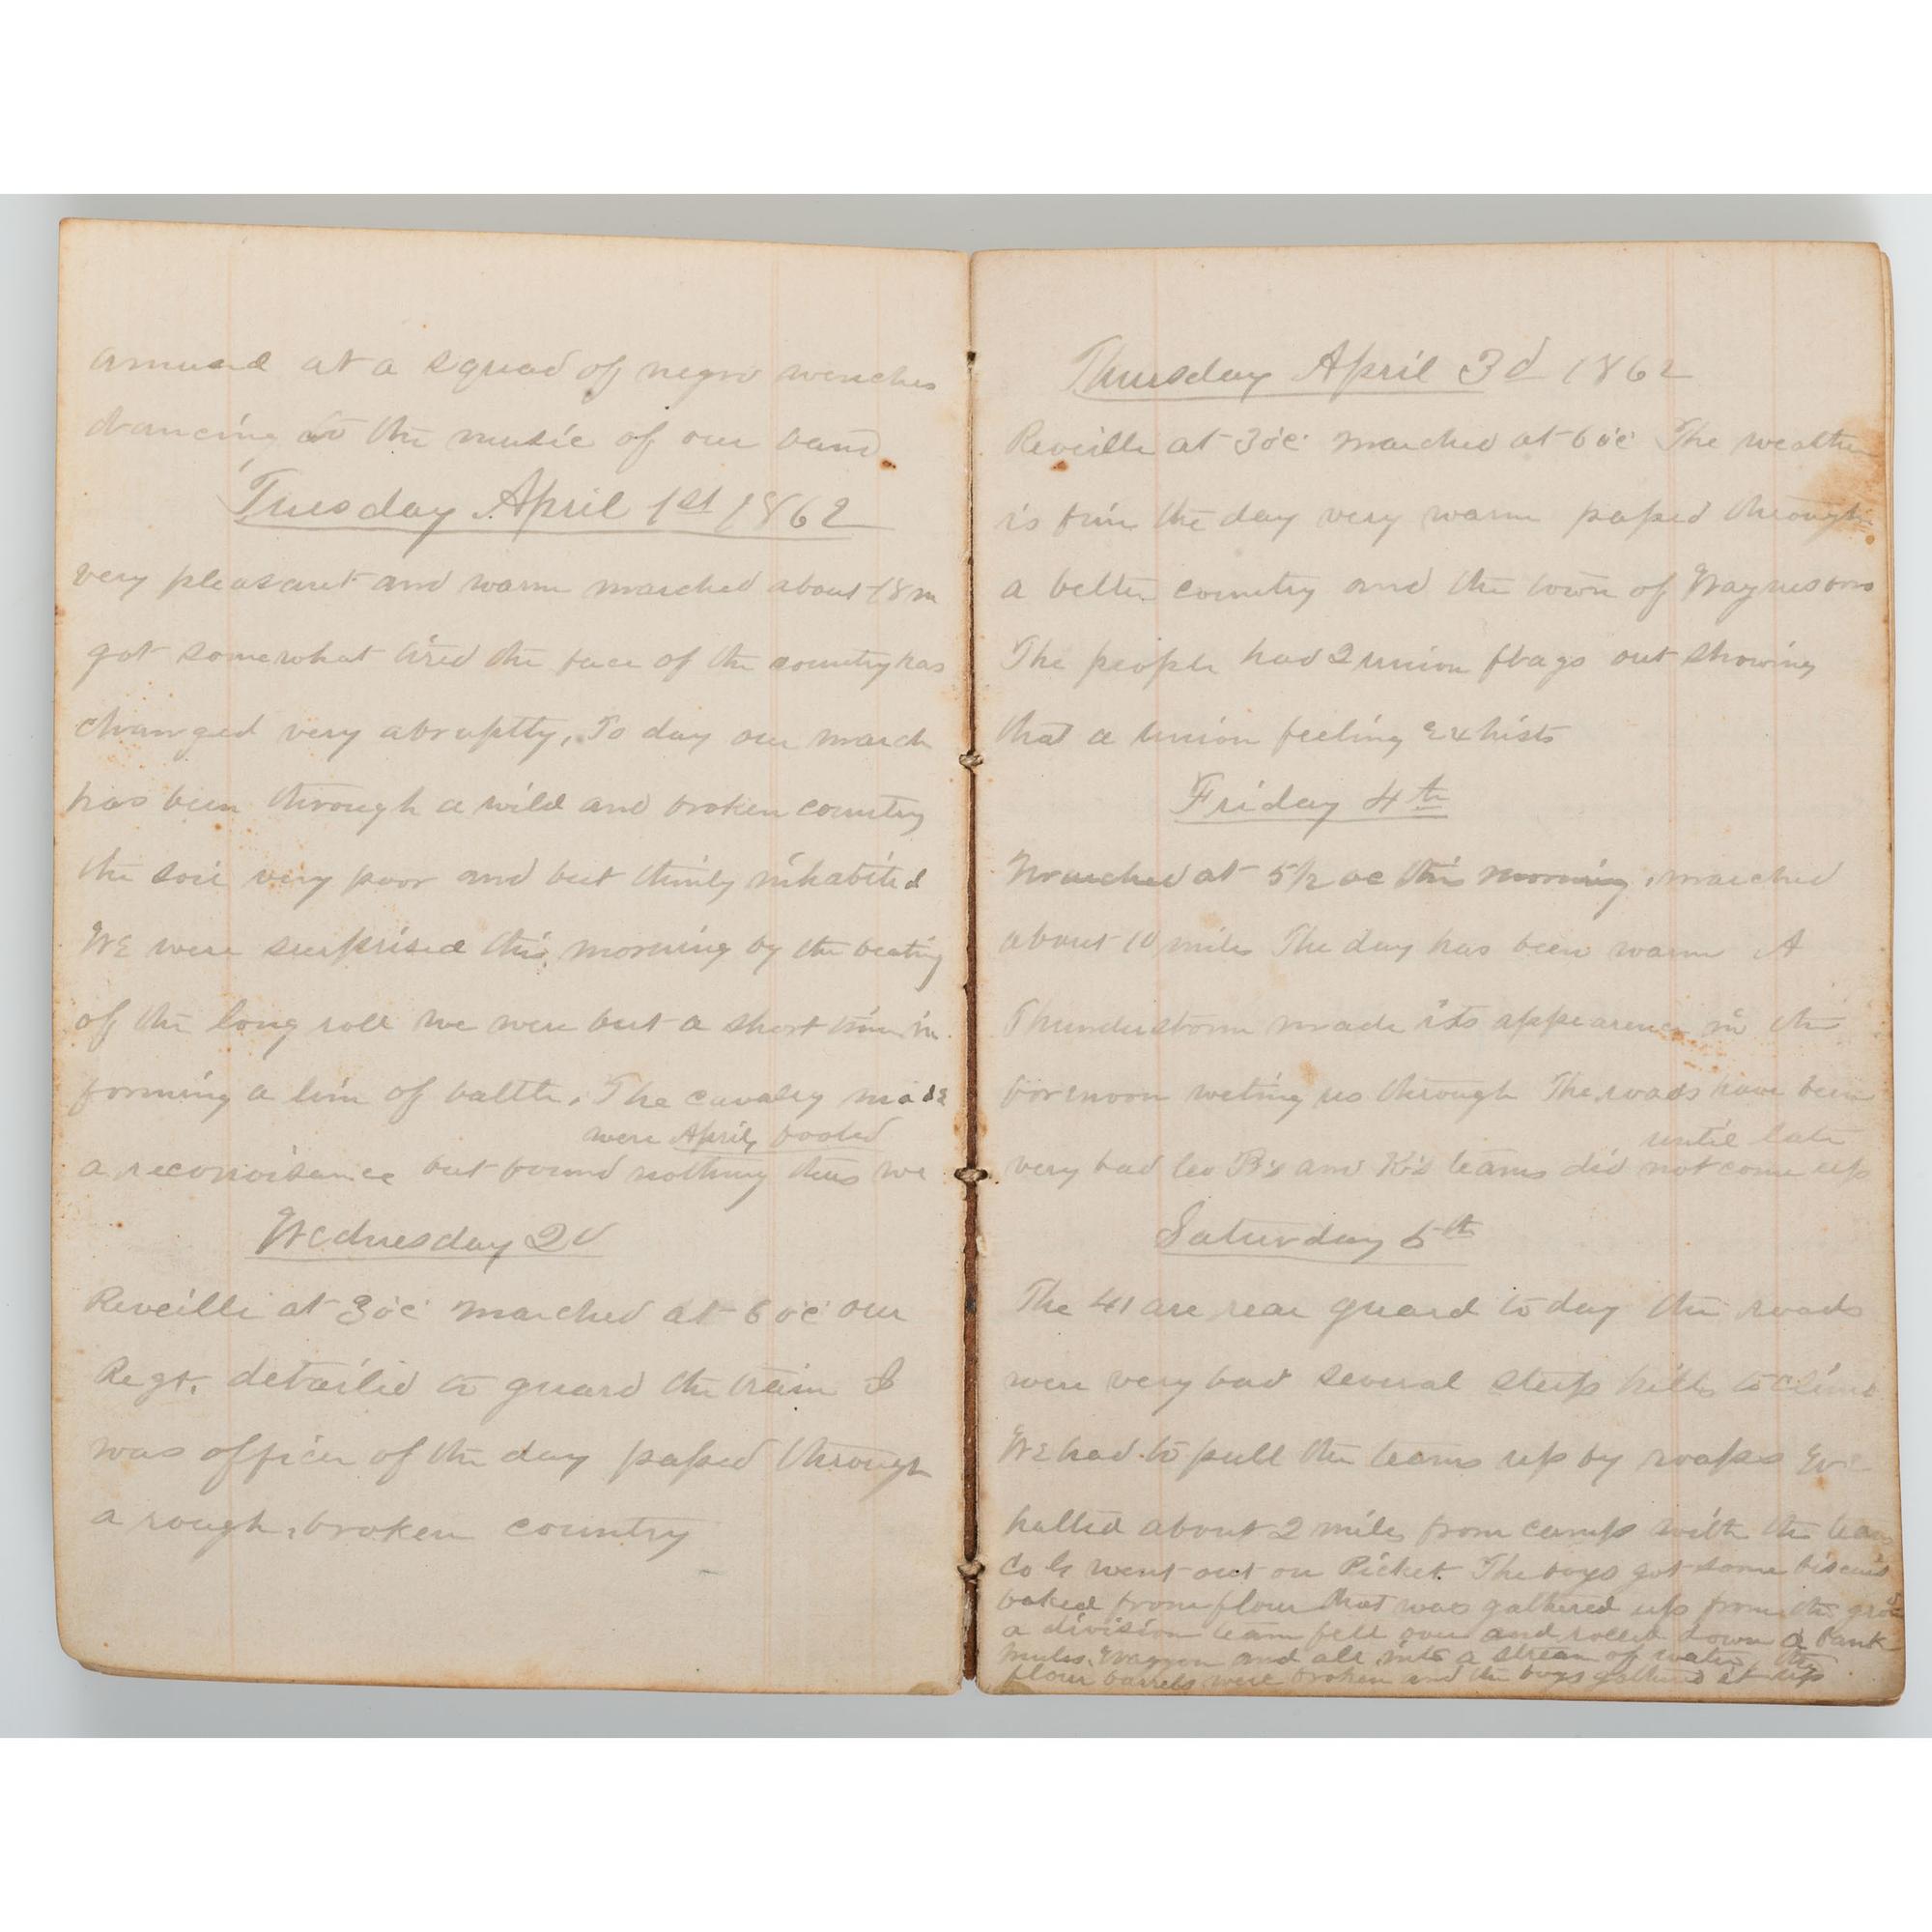 amused at a squad of negro wenches
dancing to the music of our band
Tuesday April 1st 1862
very pleasant and warm marched about 18 m
got somewhat tired the face of the country has
changed very abruptly, To day our march
has been through a wild and broken country
the soil very poor and but thinly inhabited
We were surprised this morning by the beating
of the long roll we were but a short time in
forming a line of battle. The cavalry made
were April fooled
a reconoisance but found nothing thus we
Wednesday 2d
Reveille at 3 oc marched at 6 oc our
Regt. detailed to guard the train I
was officer of the day passed through
a rough, broken country
Thursday April 3d 1862
Reveille at 3 oc marched at 6 oc The weather
is fine the day very warm passed through
a better country and the town of Waynesboro
The people had 2 union flags out showing
that a union feeling exhists
Friday 4th
Marched at 5 1/2 oc this morning, marched
about 10 miles The day has been warm A
Thunderstorm made its appearence in the
forenoon weting us through The roads have been
until late
very bad Co B's and K's teams did not come up
Saturday 5th
The 41 are rear guard to day the roads
were very bad several steep hills to climb
We had to pull the teams up by roapes We
halted about 2 miles from camp with the teams
Co G went out on Picket. The boys got some biscuit
baked from flour that was gathered up from the ground
a division team fell over and rolled down a bank
mules, Waggon and all into a stream of water, the
flour barrels were broken and the boys gathered it up